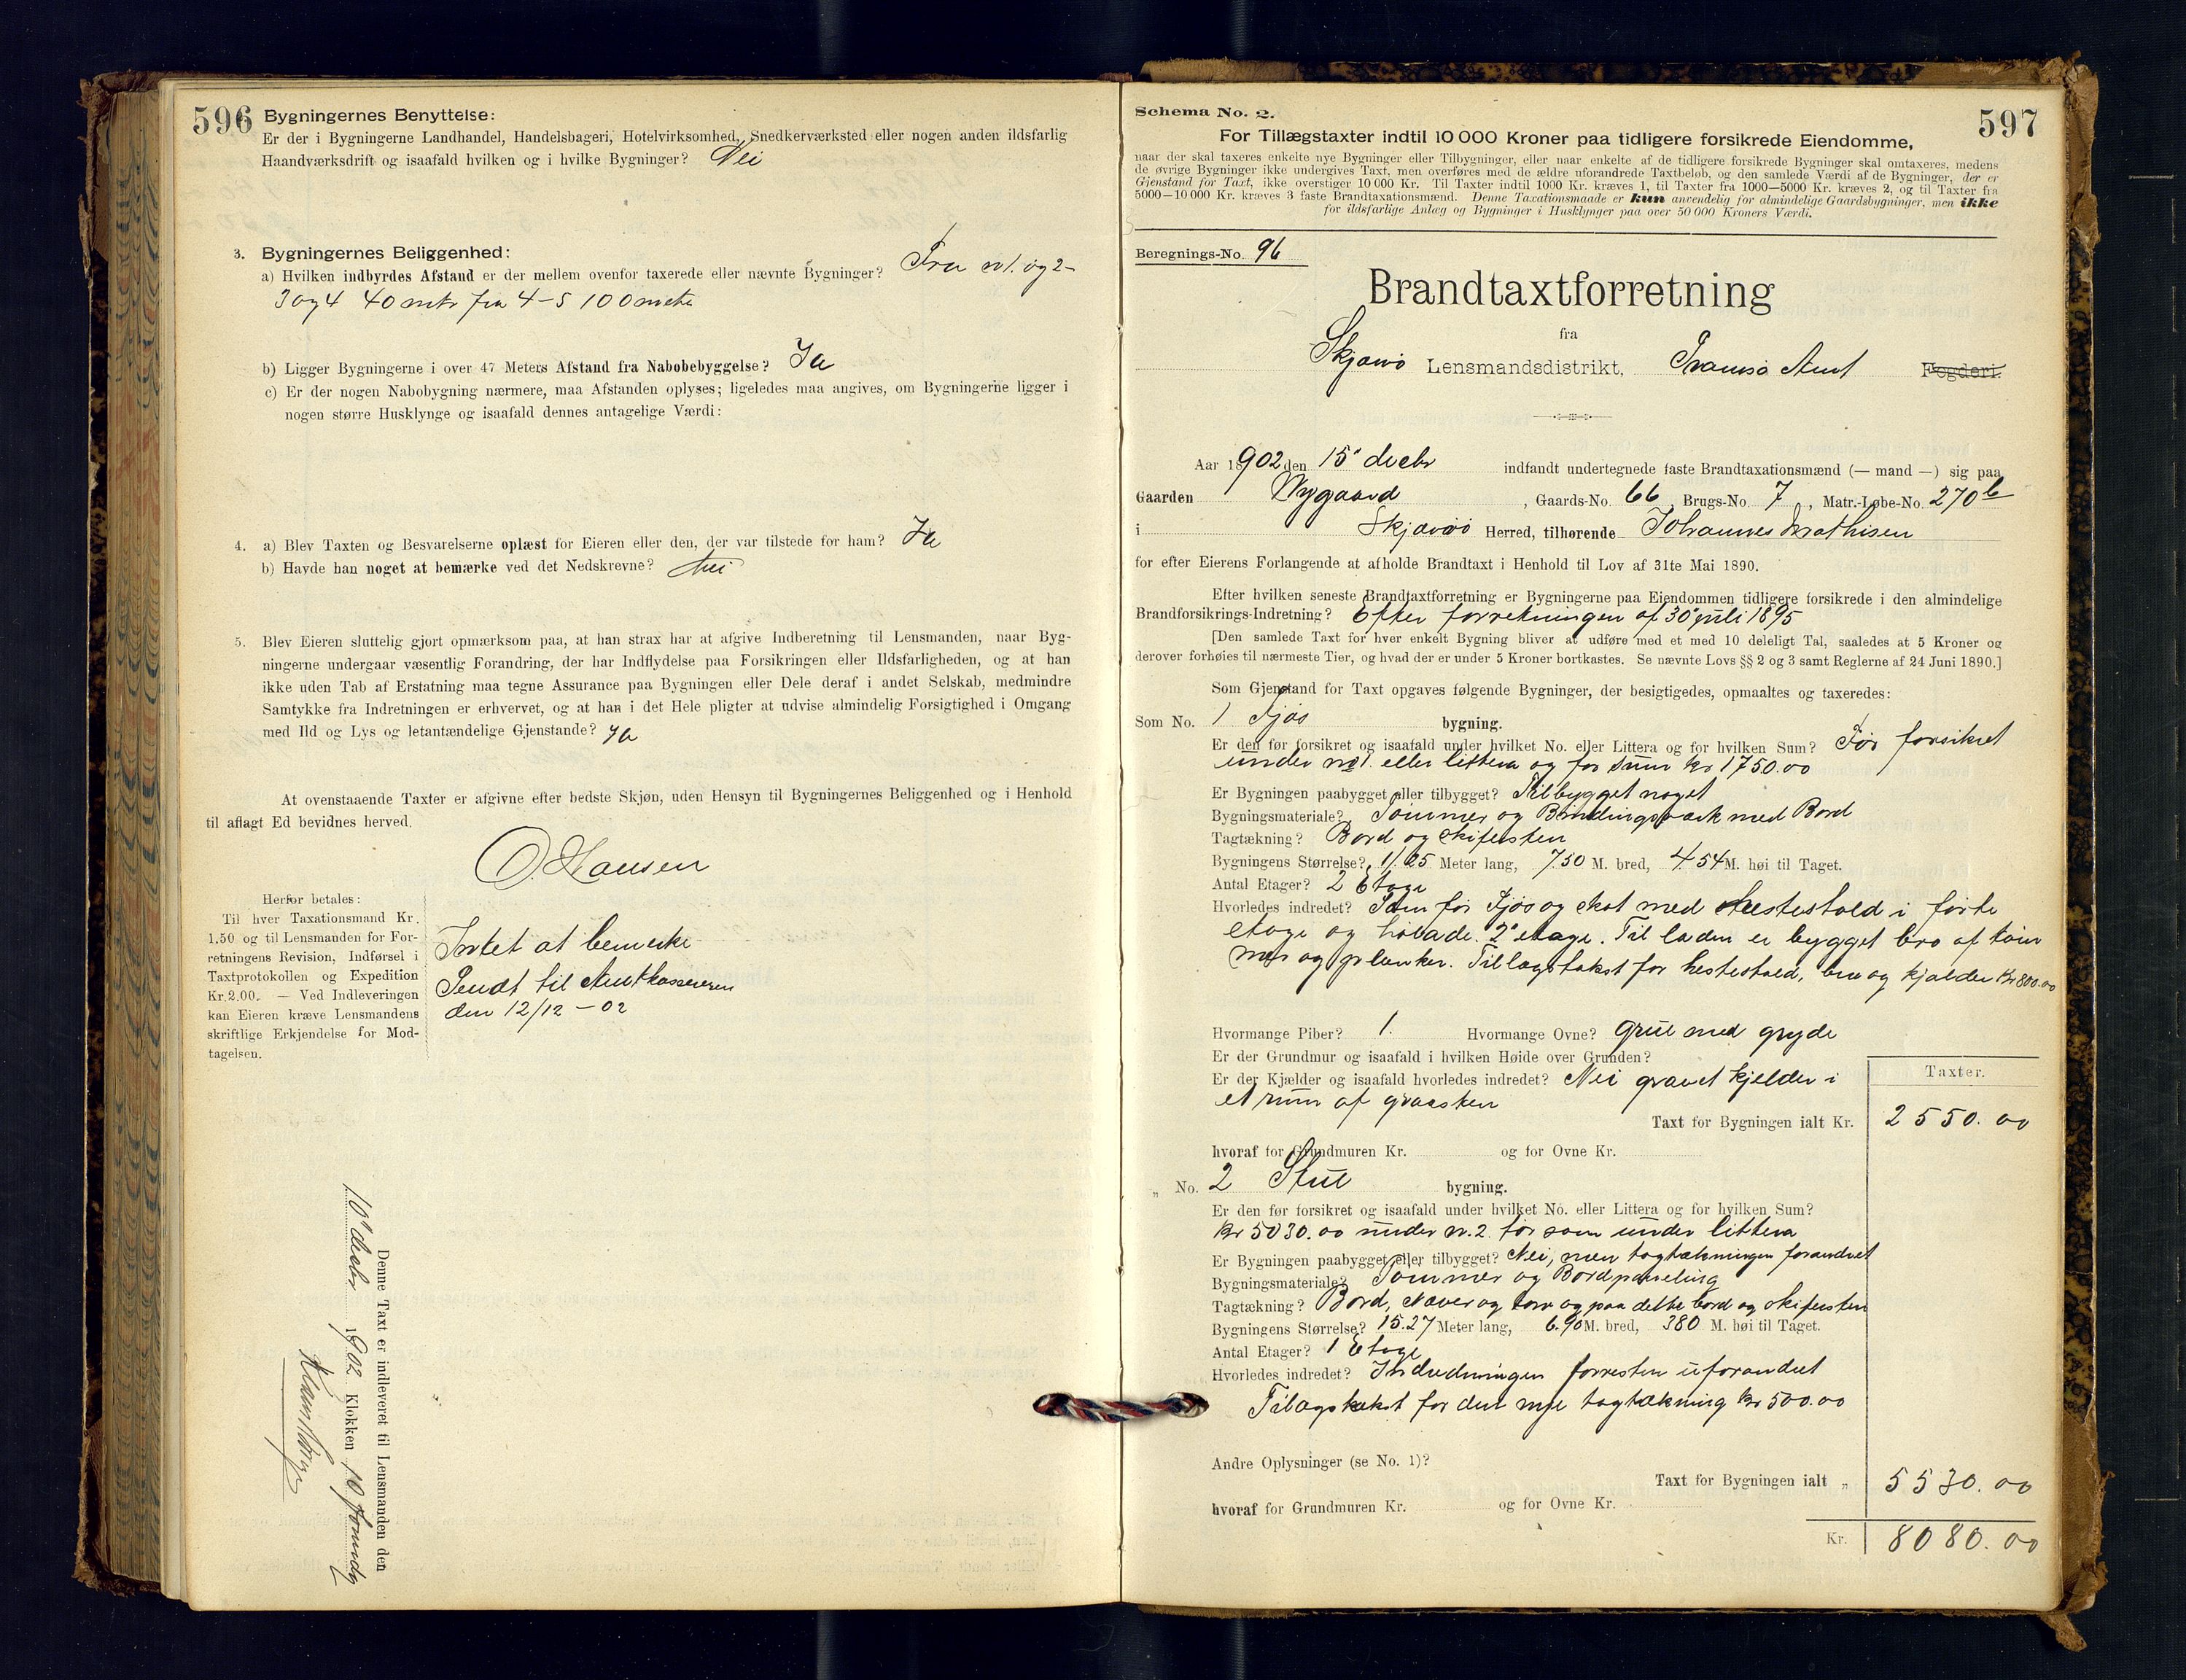 596 Bygningernes Benyttelse:
Er der i Bygningerne Landhandel, Handelsbageri, Hotelvirksomhed, Snedkerværksted eller nogen anden ildsfarlig
Haandværksdrift og isaafald hvilken og i hvilke Bygninger? Nei
3. Bygningernes Beliggenhed:
a) Hvilken indbyrdes Afstand er der mellem ovenfor taxerede eller nævnte Bygninger? Fra n 1. og 2-
3 og 4 40 mtr fra 4-5 100 metr
b) Ligger Bygningerne i over 47 Meters Afstand fra Nabobebyggelse? Ja
c) Er der nogen Nabobygning nærmere, maa Afstanden oplyses; ligeledes maa angives, om Bygningerne ligger i
nogen større Husklynge og isaafald dennes antagelige Værdi:
4. a) Blev Taxten og Besvarelserne oplæst for Eieren eller den, der var tilstede for ham? Ja
b) Havde han noget at bemærke ved det Nedskrevne? Nei
5. Blev Eieren sluttelig gjort opmærksom paa, at han strax har at afgive Indberetning til Lensmanden, naar Byg-
ningerne undergaar væsentlig Forandring, der har Indflydelse paa Forsikringen eller Ildsfarligheden, og at han
ikke uden Tab af Erstatning maa tegne Assurance paa Bygningen eller Dele deraf i andet Selskab, medmindre
Samtykke fra Indretningen er erhvervet, og at han i det Hele pligter at udvise almindelig Forsigtighed i Omgang
med Ild og Lys og letantændelige Gjenstande? Ja
At ovenstaaende Taxter er afgivne efter bedste Skjøn, uden Hensyn til Bygningernes Beliggenhed og i Henhold
til aflagt Ed bevidnes herved.
O. Hansen
Herfor betales:
Til hver Taxationsmand Kr.
1.50 og til Lensmanden for For-
retningens Revision, Indførsel i
Taxtprotokollen og Expedition
Kr. 2.00. — Ved Indleveringen
kan Eieren kræve Lensmandens
skriftlige Erkjendelse for Mod-
tagelsen.
Intet at bemerke
Sendt til Amtkassereren
den 12/12 - 02
Denne Taxt er indleveret til Lensmanden den
10' decbr 1902 Klokken 10 formidg
597
Schema No. 2.
For Tillægstaxter indtil 10 000 Kroner paa tidligere forsikrede Eiendomme,
naar der skal taxeres enkelte nye Bygninger eller Tilbygninger, eller naar enkelte af de tidligere forsikrede Bygninger skal omtaxeres, medens
de øvrige Bygninger ikke undergives Taxt, men overføres med de ældre uforandrede Taxtbeløb, og den samlede Værdi af de Bygninger, der er
Gjenstand for Taxt, ikke overstiger 10 000 Kr. Til Taxter indtil 1000 Kr. kræves 1, til Taxter fra 1000—5000 Kr. kræves 2, og til Taxter fra
5000—10 000 Kr. kræves 3 faste Brandtaxationsmænd. Denne Taxationsmaade er kun anvendelig for almindelige Gaardsbygninger, men ikke
for ildsfarlige Anlæg og Bygninger i Husklynger paa over 50 000 Kroners Værdi.
Beregnings-No. 96
Brandtaxtforretning
fra
Skjærvø Lensmandsdistrikt, Tromsø Amt Fogderi.
Aar 1902 den 15' decbr indfandt undertegnede faste Brandtaxationsmænd (— mand —) sig paa
Gaarden Nygaard, Gaards-No. 66, Brugs-No. 7, Matr.-Løbe-No. 270 b
i Skjærvø Herred, tilhørende Johannes Mathisen
for efter Eierens Forlangende at afholde Brandtaxt i Henhold til Lov af 31te Mai 1890.
Efter hvilken seneste Brandtaxtforretning er Bygningerne paa Eiendommen tidligere forsikrede i den almindelige
Brandforsikrings-Indretning? Efter forretningen af 30' juli 1895
[Den samlede Taxt for hver enkelt Bygning bliver at udføre med et med 10 deleligt Tal, saaledes at 5 Kroner og
derover forhøies til nærmeste Tier, og hvad der er under 5 Kroner bortkastes. Se nævnte Lovs §§ 2 og 3 samt Reglerne af 24 Juni 1890.]
Som Gjenstand for Taxt opgaves følgende Bygninger, der besigtigedes, opmaaltes og taxeredes:
Som No. 1 Fjøs bygning.
Er den før forsikret og isaafald under hvilket No. eller Littera og for hvilken Sum? Før forsikret
under no 1. eller littera og for sum kr 1750.00
Er Bygningen paabygget eller tilbygget? Tilbygget noget
Bygningsmateriale? Tømmer og Bindingsværk med Bord
Tagtækning? Bord og skifersten
Bygningens Størrelse? 11.05 Meter lang, 7.50 M. bred, 4.54 M. høi til Taget.
Antal Etager? 2 Etage
Hvorledes indredet? Som før Fjøs og skot med Hestestald i første
etage og hølade. 2' etage. Til laden er bygget bro af tøm
mer og planker. Tillægstakst for hestestald, bro og kjælder kr 800.00
Hvormange Piber? 1. Hvormange Ovne? Grue med gryde
Er der Grundmur og isaafald i hvilken Høide over Grunden?
Er der Kjælder og isaafald hvorledes indredet? Nei gravet kjelder i
et rum af graasten
Taxter.
Taxt for Bygningen ialt Kr. 2550.00
hvoraf for Grundmuren Kr. og for Ovne Kr.
„ No. 2 Stue bygning.
Er den før forsikret og isaafald under hvilket No. eller Littera og for hvilken Sum?
Kr 5030.00 under n. 2. før som under littera
Er Bygningen paabygget eller tilbygget? Nei, men tagtækningen forandret
Bygningsmateriale? Tømmer og Bordpaneling
Tagtækning? Bord, Næver og torv og paa dette bord og skifersten
Bygningens Størrelse? 15.27 Meter lang, 6.90 M. bred, 380 M. høi til Taget.
Antal Etager? 1 Etage
Hvorledes indredet? Indredningen forresten uforandret
Tilægstakst for den nye tagtækning kr 500.00
Andre Oplysninger (se No. 1)?
Taxt for Bygningen ialt „ 5530.00
hvoraf for Grundmuren Kr. og for Ovne Kr.
Kr. 8080.00